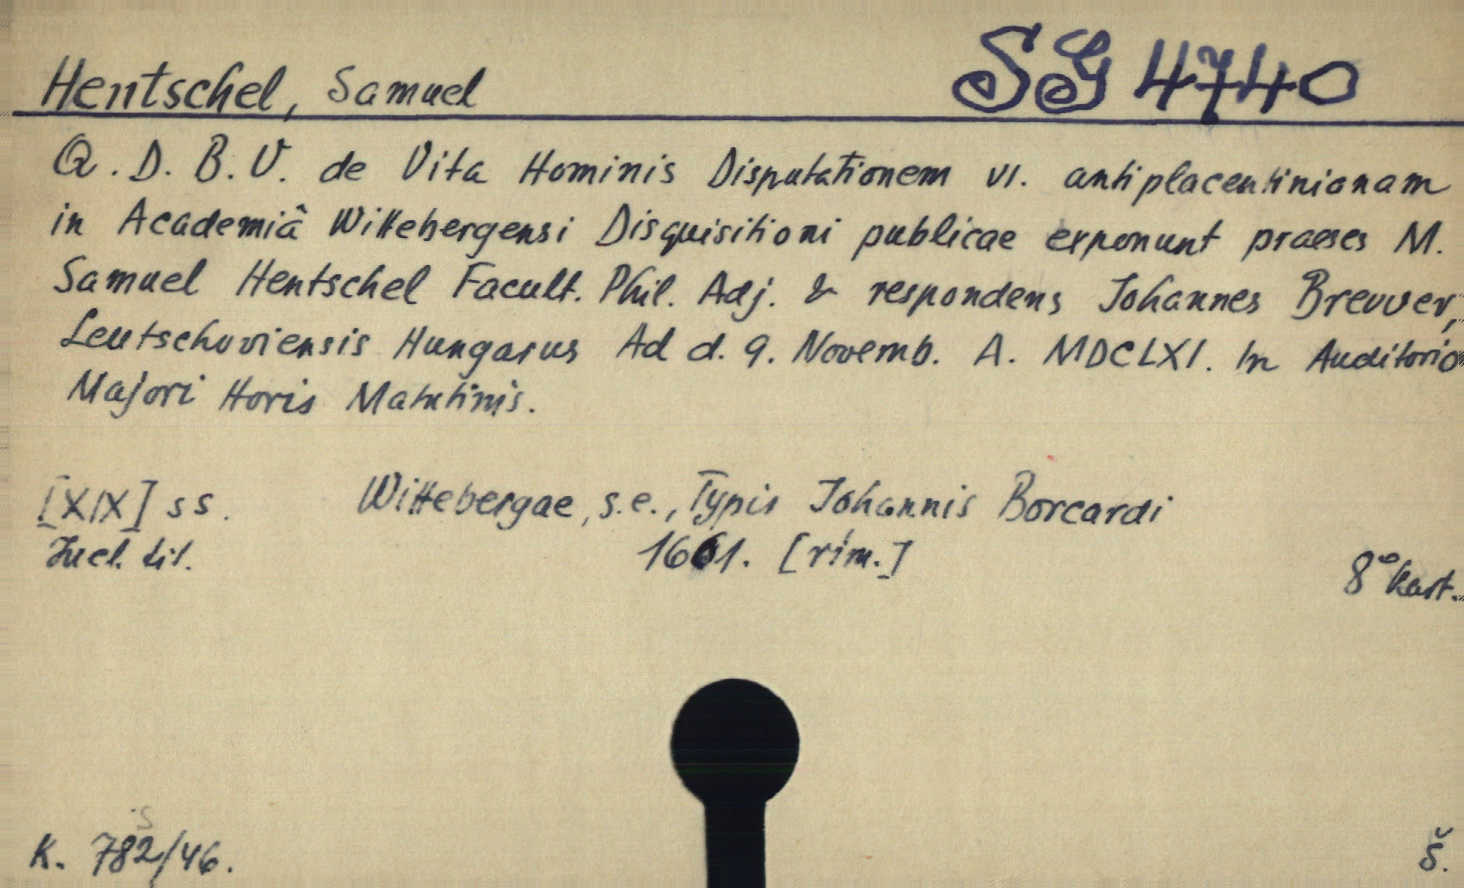 Hentschel, Samuel SG 4740
Q. D. B. V. de Vita Hominis Disputationem VI. antiplacentinianam
in Academiâ Wittebergensi Disquisitioni publicae exponunt praeses M.
Samuel Hentschel Facult. Phil. Adj. & respondens Johannes Brevver,
Leutschoviensis Hungarus Ad d. 9. Novemb. A. MDCLXI. In Auditorio
Majori Horis Matutinis.
[XIX] ss. Wittebergae, s.e., Typis Johannis Borcardi
Incl. tit. 1661. [rím.] 8° kart.
K. 782/46. Š.